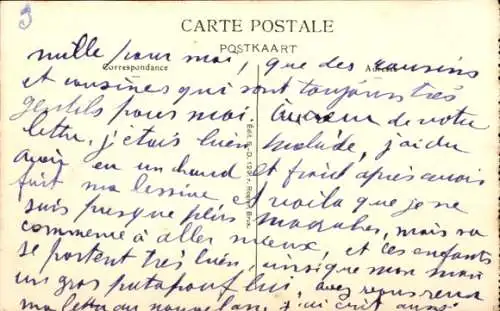 3
CARTE POSTALE
POSTKAART
mille pour moi, que des cousins
Correspondance
et cousines qui sont toujours très
gentils pour moi de votre
lettre, j'étais bien malade, j'ai du
avoir eu un chaud et froid après avoir
fait ma lessive et voila que je ne
suis presque plus mais sa
commence à aller mieux, et ces enfants
se portent très bien, ainsi que mon mari
un gros patapouf lui, avez vous reçu
ma lettre du nouvel an, j'ai écrit aussi